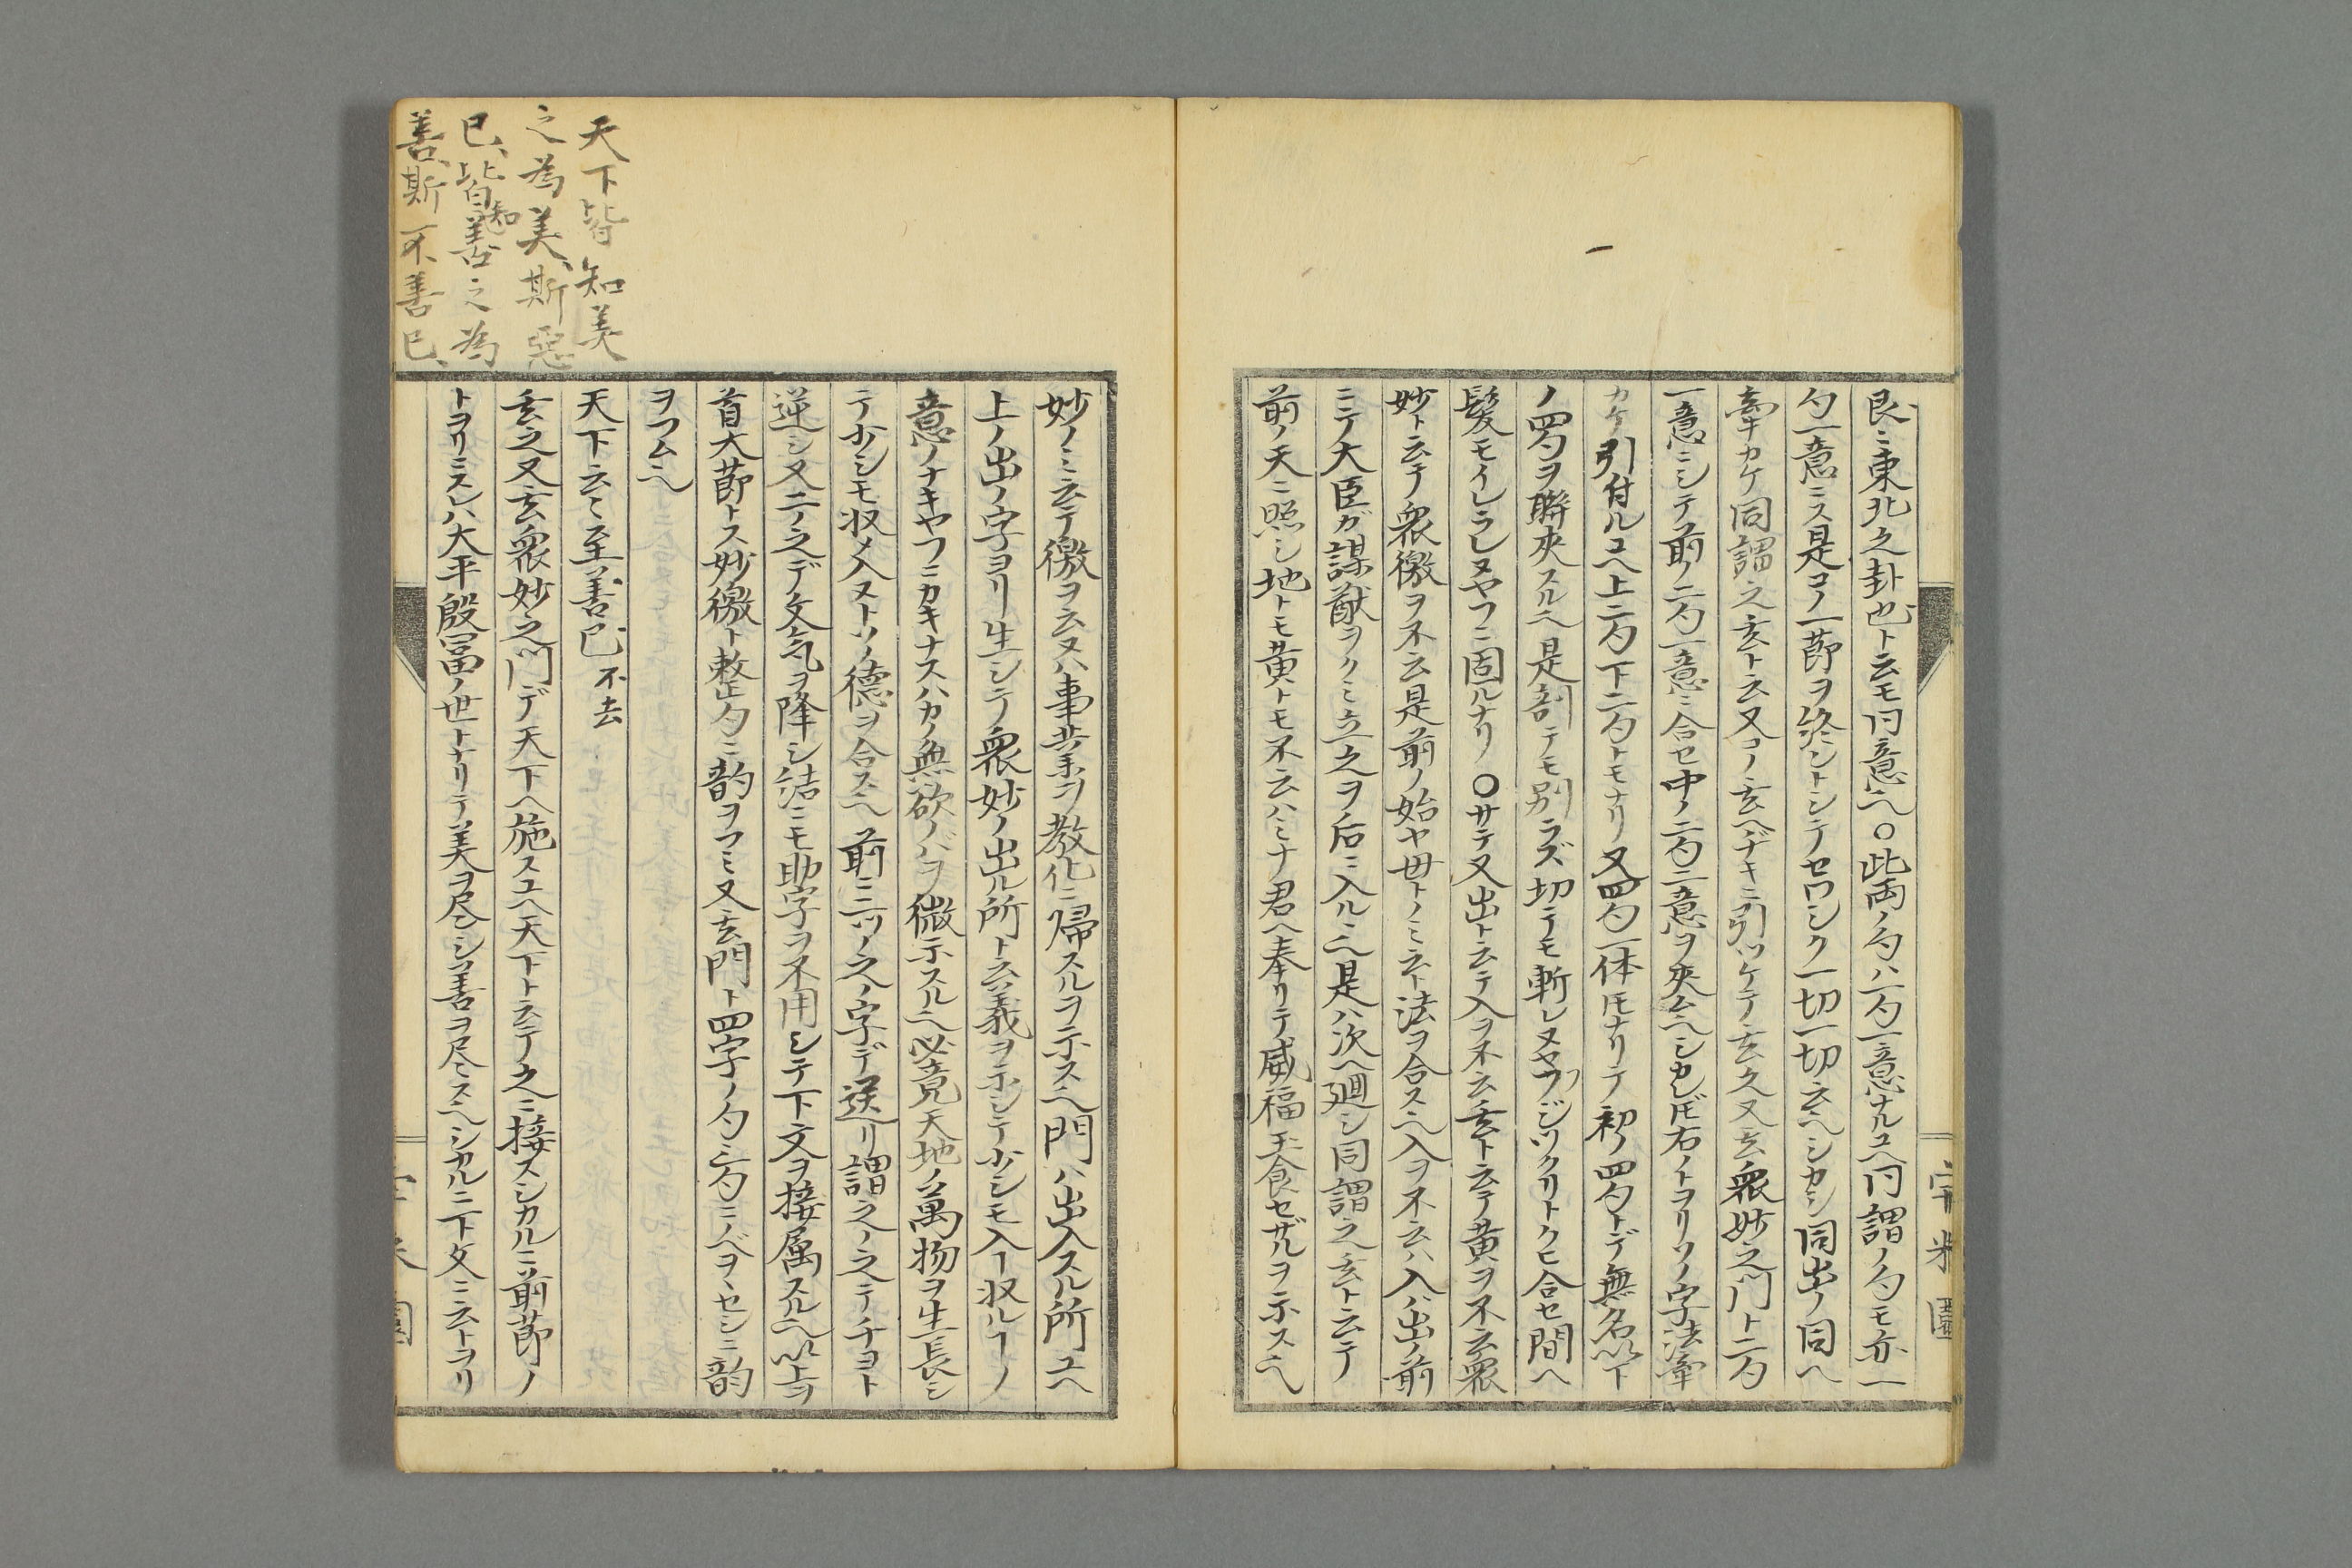 艮ニ東北之卦也ト云モ同意ヘ○此両ノ勺ハ一勺一意ナルユヘ同謂ノ勺モ亦一
勺一意ニス是コノ一節ヲ終ントシテセワシク一切一切云ヘシカシ同出ノ同ヘ
牽カケ同謂之玄ト云又コノ玄ヘヂキニ引ツケテ玄之又玄衆妙之門ト二勺
一意ニシテ前ノ二勺一意ニ合セ中ノ二勺二意ヲ夾ムヘシカレ𪜈右ノトヲリツノ字法牽
カケ引付ルユヘ上二勺下二勺トモナリ又四勺一体𪜈ナリテ初ノ四勺トデ無名以下
ノ四勺ヲ聯夾スルヘ是割テモ別ラズ切テモ斬レヌヤフジツクリトクヒ合セ間ヘ
髪モイレラレヌヤフニ固ルナリ○サテ又出ト云テ入ヲ不云玄ト云テ黄ヲ不云衆
妙ト云テ衆徼ヲ不云是前ノ始ヤ母トノミ云ト法ヲ合スヘ入ヲ不云ハ入ハ出ノ前
ニテ大臣ガ謀猷ヲクミ立之ヲ后ニ入ルヘ是ハ次ヘ廻シ同謂之玄ト云テ
前ノ天ニ照シ地トモ黄トモ不云ハミナ君ヘ奉リテ威福玉食セザルヲ示スヘ
天下皆知美
之為美、斯惡
已、皆知善之為
善、斯不善已、
妙ノミ云テ徼ヲ云ヌハ事業ヲ教化ニ帰スルヲ示スヘ門ハ出入スル所ユヘ
上ノ出ノ字ヨリ生シテ衆妙ノ出ル所ト云義ヲ示シテ少シモ入ヿ収ルヿノ
意ノナキヤフニカキナスハカノ無欲ノバヲ微示スルヘ必竟天地ノ萬物ヲ生長シ
テ少シモ収メ入ヌトツノ徳ヲ合スヘ前ニ二ツノ之ノ字デ送リ謂之ノ之テチヨト
逆シ又二ノ之デ文気ヲ降シ結ニモ助字ヲ不用シテ下文ヲ接属スルヘ以上ヲ
首大節トス妙徼ト整勺ニ韵ヲフミ又玄門ト四字ノ勺三勺ニノベヲヽセシニ韵
ヲフムヘ
天下云々至善已 不去
玄之又玄衆妙之門デ天下ヘ施スユヘ天下ト云テ之ニ接スシカルニ前節ノ
トヲリニスレハ大平殷冨ノ世トナリテ美ヲ尽シ善ヲ尽スヘシカルニ下文ニ云トヲリ